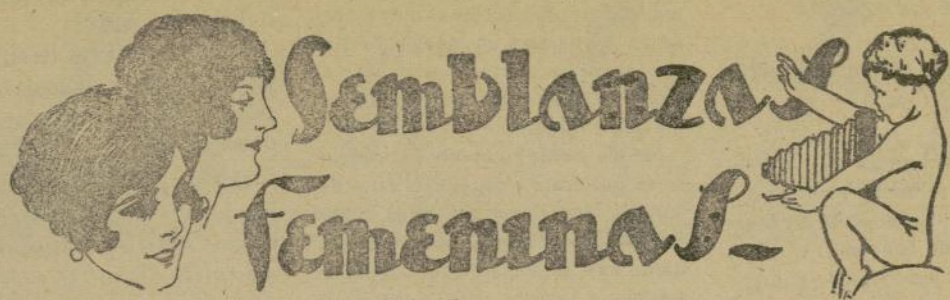 Semblanzas
Femeninas